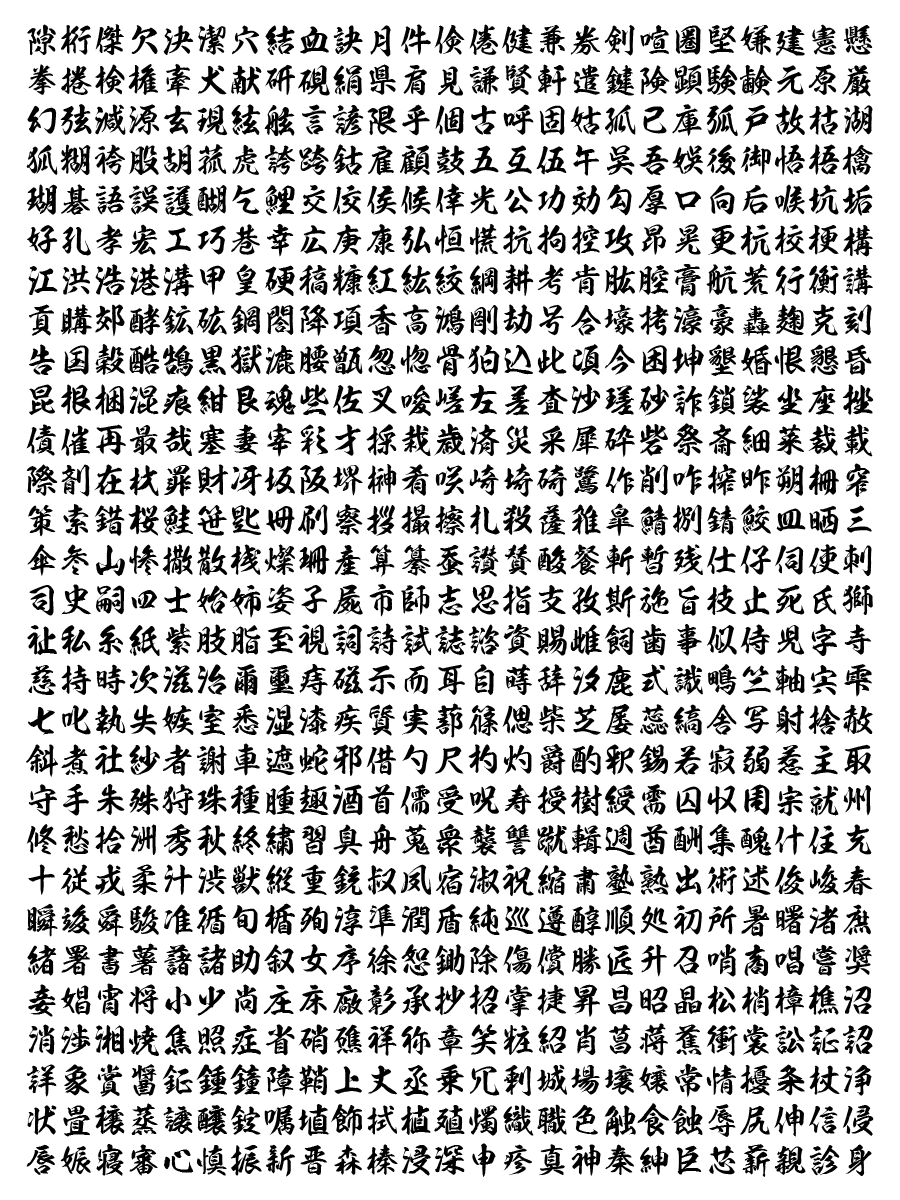 隙桁傑欠決潔穴結血訣月件倹倦健兼券剣喧圏堅嫌建憲懸
拳捲検権牽犬献研硯絹県肩見謙賢軒遣鍵険顕験鹸元原厳
幻弦減源玄現絃舷言諺限乎個古呼固姑孤己庫弧戸故枯湖
狐糊袴股胡菰虎誇跨鈷雇顧鼓五互伍午呉吾娯後御悟梧檎
瑚碁語誤護醐乞鯉交佼侯候倖光公功効勾厚口向后喉坑垢
好孔孝宏工巧巷幸広庚康弘恒慌抗拘控攻昂晃更杭校梗構
江洪浩港溝甲皇硬稿糠紅紘絞綱耕考肯肱腔膏航荒行衡講
貢購郊酵鉱砿鋼閤降項香高鴻剛劫号合壕拷濠豪轟麹克刻
告国穀酷鵠黒獄漉腰甑忽惚骨狛込此頃今困坤墾婚恨懇昏
昆根梱混痕紺艮魂些佐叉唆嵯左差査沙瑳砂詐鎖裟坐座挫
債催再最哉塞妻宰彩才採栽歳済災采犀砕砦祭斎細菜裁載
際剤在材罪財冴坂阪堺榊肴咲崎埼碕鷺作削咋搾昨朔柵窄
策索錯桜鮭笹匙冊刷察拶撮擦札殺薩雑皐鯖捌錆鮫皿晒三
傘参山惨撒散桟燦珊産算纂蚕讃賛酸餐斬暫残仕仔伺使刺
司史嗣四士始姉姿子屍市師志思指支孜斯施旨枝止死氏獅
祉私糸紙紫肢脂至視詞詩試誌諮資賜雌飼歯事似侍児字寺
慈持時次滋治爾璽痔磁示而耳自蒔辞汐鹿式識鴫竺軸宍雫
七叱執失嫉室悉湿漆疾質実蔀篠偲柴芝屡蕊縞舎写射捨赦
斜煮社紗者謝車遮蛇邪借勺尺杓灼爵酌釈錫若寂弱惹主取
守手朱殊狩珠種腫趣酒首儒受呪寿授樹綬需囚収周宗就州
修愁拾洲秀秋終繍習臭舟蒐衆襲讐蹴輯週酋酬集醜什住充
十従戎柔汁渋獣縦重銃叔夙宿淑祝縮粛塾熟出術述俊峻春
瞬竣舜駿准循旬楯殉淳準潤盾純巡遵醇順処初所暑曙渚庶
緒署書薯藷諸助叙女序徐恕鋤除傷償勝匠升召哨商唱嘗奨
妾娼宵将小少尚庄床廠彰承抄招掌捷昇昌昭晶松梢樟樵沼
消渉湘焼焦照症省硝礁祥称章笑粧紹肖菖蒋蕉衝裳訟証詔
詳象賞醤鉦鍾鐘障鞘上丈丞乗冗剰城場壌嬢常情擾条杖浄
状畳穣蒸譲醸錠嘱埴飾拭植殖燭織職色触食蝕辱尻伸信侵
唇娠寝審心慎振新晋森榛浸深申疹真神秦紳臣芯薪親診身